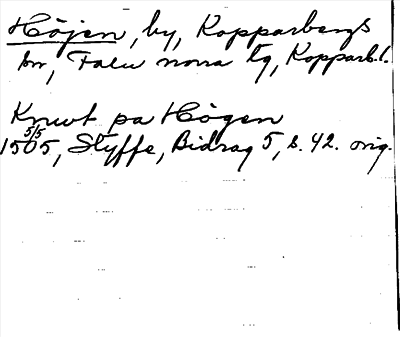 Höjen, by, Kopparbergs
sn, Falu norra tg, Kopparb.l.
Knut pa Högen
5/5
1505, Styffe, Bidrag 5, s. 42. orig.